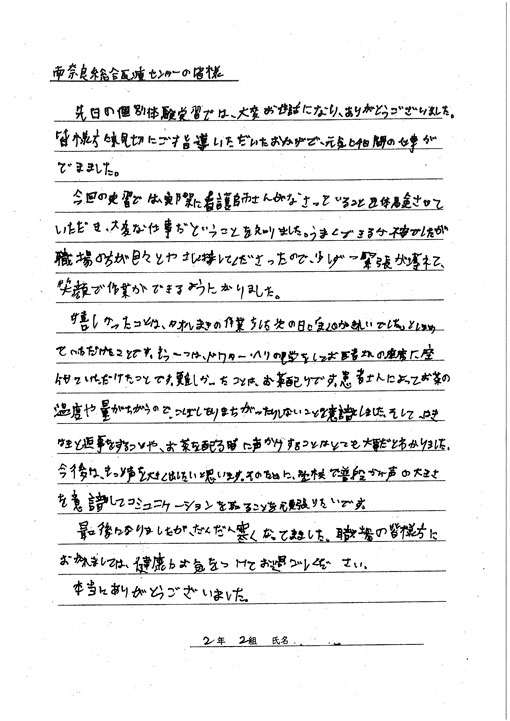 南奈良総合医療センターの皆様
先日の個別体験学習では、大変お世話になり、ありがとうございました。
皆様方が親切にご指導いただいたおかげで、元気に4日間の仕事が
できました。
今回の実習では、実際に看護師さんがなさっていることを体験させて
いただき、大変な仕事だということを知りました。うまくできるか不安でしたが
職場の方が色々とやさしく接してくださったので、少しずつ緊張が薄れて、
笑顔で作業ができるようになりました。
嬉しかったことは、タオルまきの作業をした次の日に
ていただけたことです。もう一つは、ドクターヘリの見学をしてお医者さんの座席に座
らせていただけたことです。難しかったことは、お茶配りです。患者さんによってお茶の
温度や量がちがうので、こぼしたりまちがったりしないことを意識しました。そして、
返事をすることや、お茶を配る時に声かけすることはとても大事だとわかりました。
今後は、もっと声を大きく出したいと思います。そのために、学校で普段から声の大きさ
を意識してコミュニケーションを取ることを頑張りたいです。
最後になりましたが、だんだん寒くなってきました。職場の皆様方に
おかれましては、健康にお気をつけてお過ごしください。
本当にありがとうございました。
2年 2組 氏名